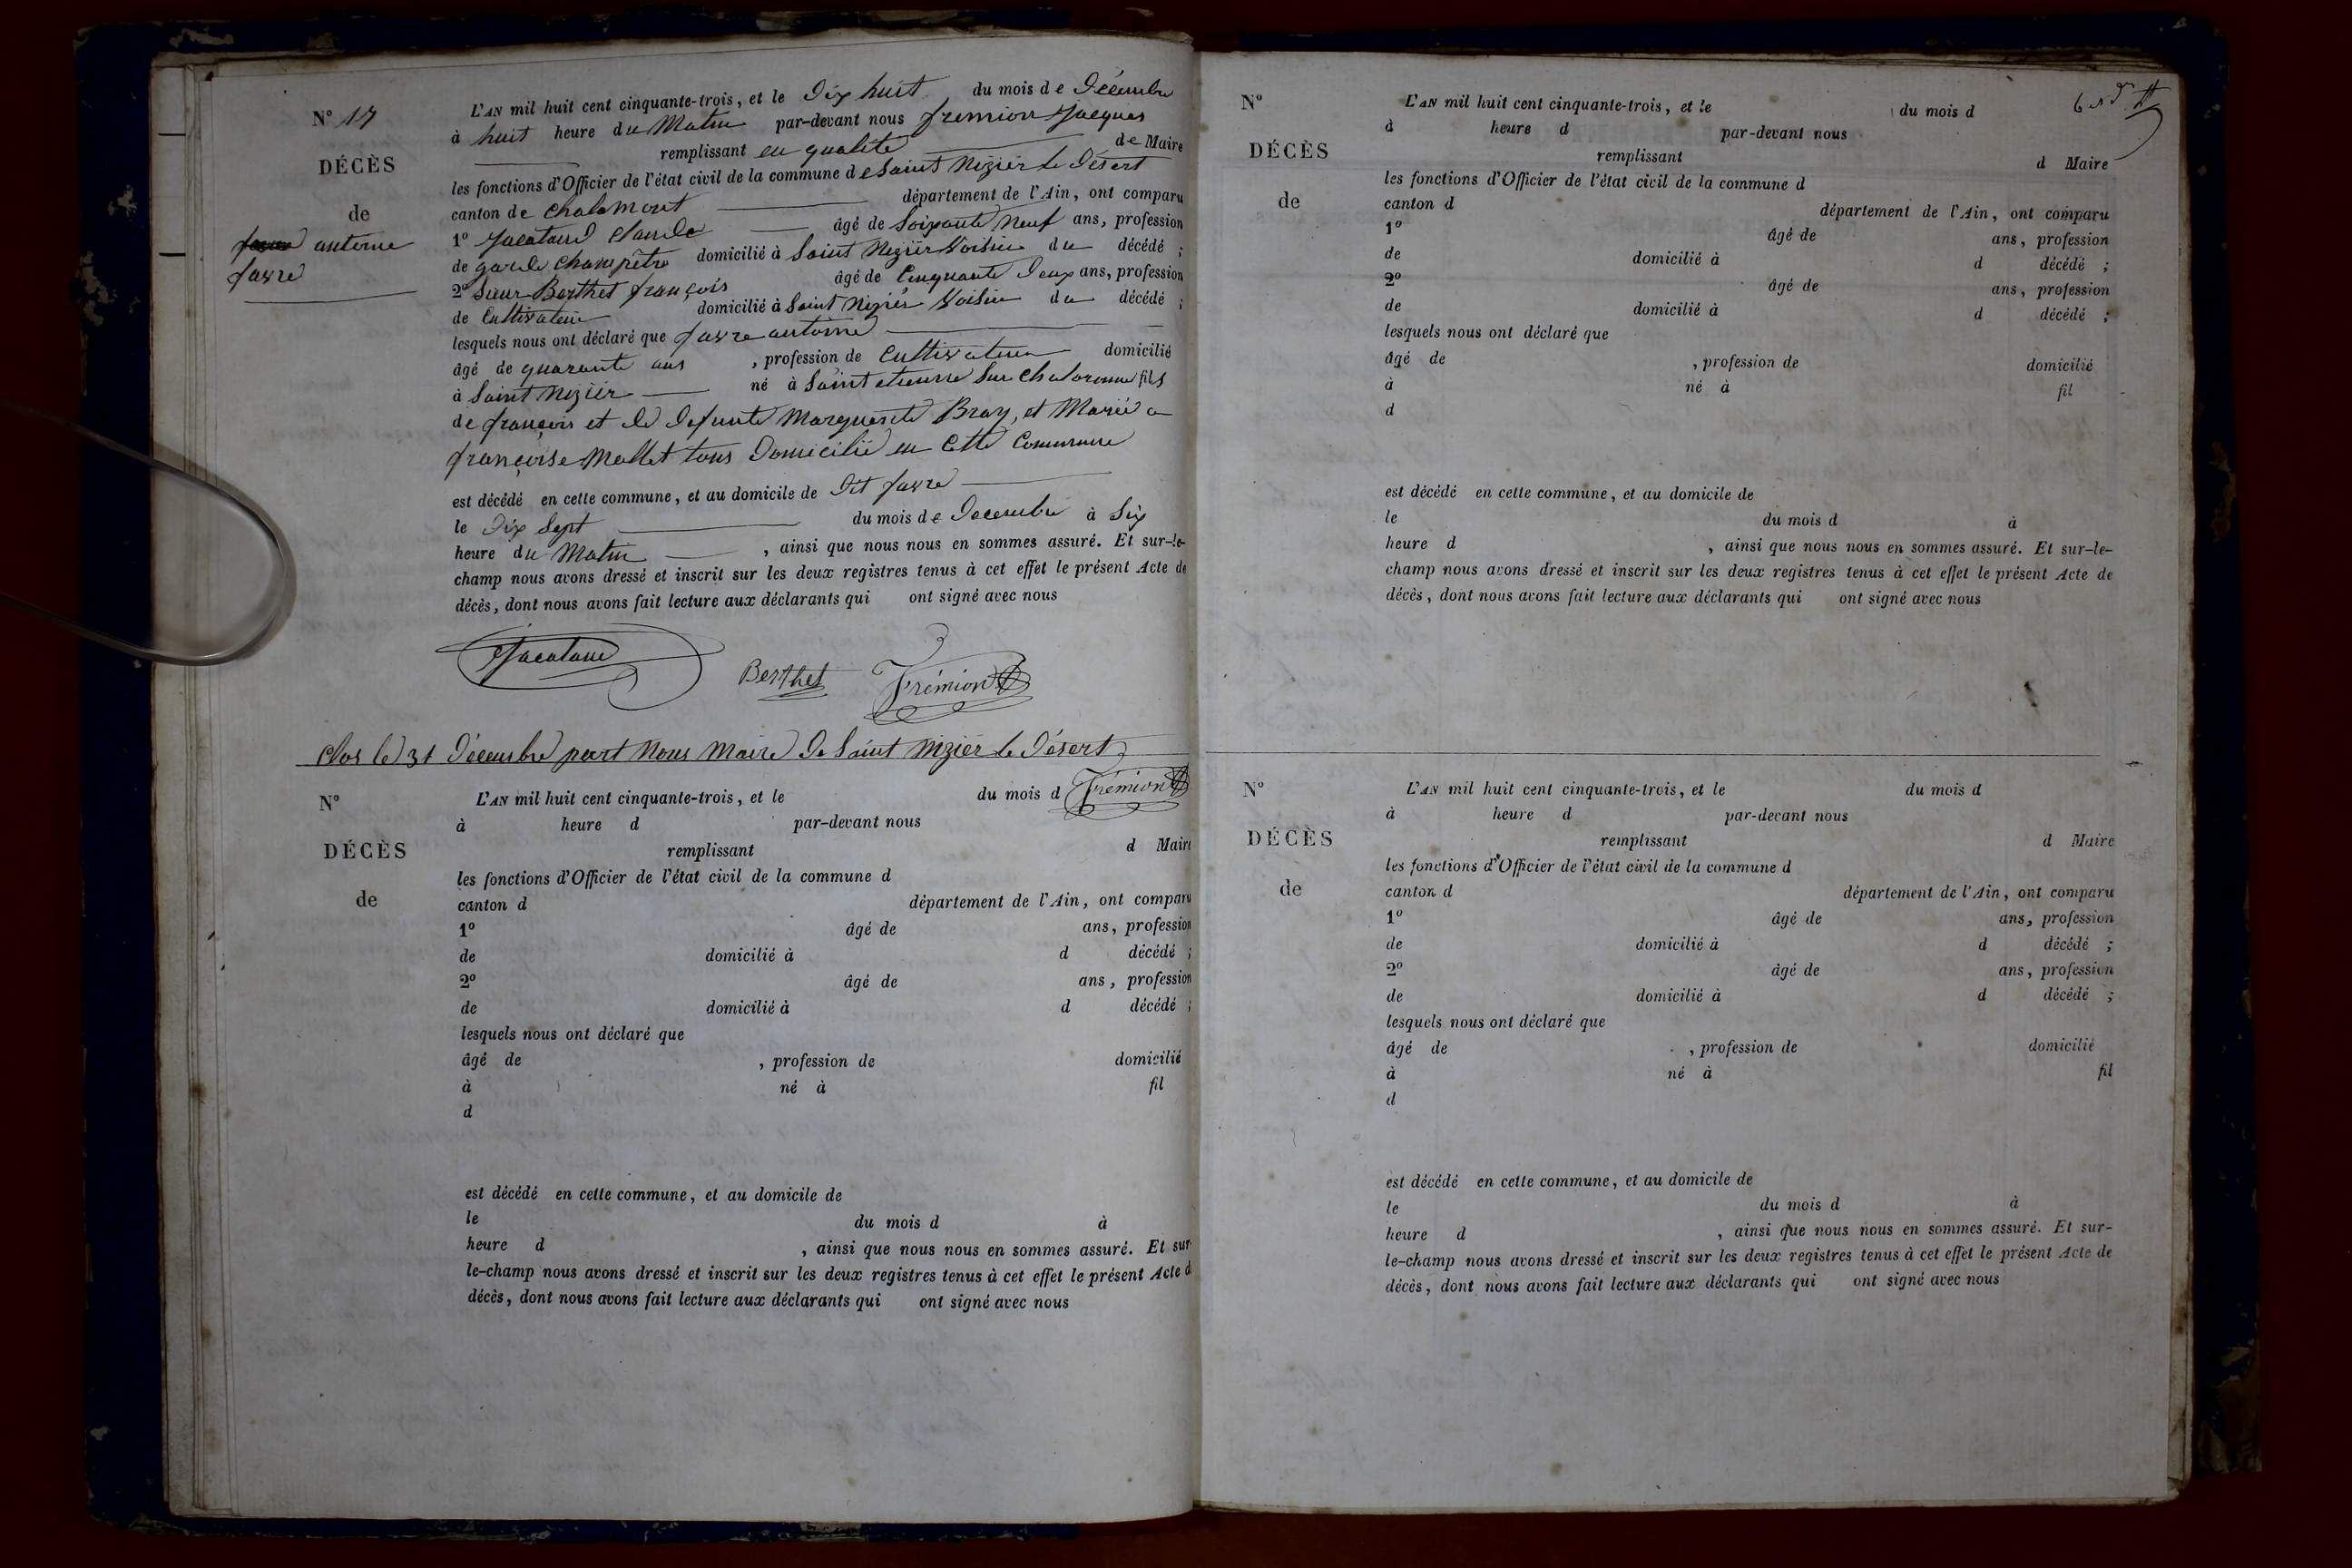 N° 17
DÉCÈS
de
antoine
favre
L'AN mil huit cent cinquante-trois, et le Dix huit du mois de Décembre
à huit heure du Matin par-devant nous fremion Jacques
remplissant en qualité de Maire
les fonctions d'Officier de l'état civil de la commune de Saint Nizier le Désert
canton de Chalamont département de l'Ain, ont comparu
1° Claude âgé de Soixante Neuf ans, profession
de garde Champêtre domicilié à Saint Nizier Voisin du décédé ;
2° Sieur Berthet françois âgé de Cinquante Deux ans, profession
de Cultivateur domicilié à Saint Nizier Voisin du décédé ;
lesquels nous ont déclaré que favre antoine
âgé de quarante ans , profession de Cultivateur domicilié
à Saint Nizier né à Saint etienne Sur Chalaronne fils
de françois et de Defunte Marguerite Bray, et Marié a
françoise Mallet tous Domicilié en Cette Commune
est décédé en cette commune, et au domicile de Dit favre
le Dix Sept du mois de Decembre à Six
heure du Matin , ainsi que nous nous en sommes assuré. Et sur-le-
champ nous avons dressé et inscrit sur les deux registres tenus à cet effet le présent Acte de
décès, dont nous avons fait lecture aux déclarants qui ont signé avec nous
Berthet Frémion
Clos le 31 Décembre part Nous Maire De Saint Nizier le Désert
Frémion
N°
DÉCÈS
de
L'AN mil huit cent cinquante-trois, et le du mois d
à heure d par-devant nous
remplissant d Maire
les fonctions d'Officier de l'état civil de la commune d
canton d département de l'Ain, ont comparu
1° âgé de ans, profession
de domicilié à d décédé ;
2° âgé de ans, profession
de domicilié à d décédé ;
lesquels nous ont déclaré que
âgé de , profession de domicilié
à né à fil
d
est décédé en cette commune, et au domicile de
le du mois d à
heure d , ainsi que nous nous en sommes assuré. Et sur-
le-champ nous avons dressé et inscrit sur les deux registres tenus à cet effet le présent Acte d
décès, dont nous avons fait lecture aux déclarants qui ont signé avec nous
N°
DÉCÈS
de
L'AN mil huit cent cinquante-trois, et le du mois d
à heure d par-devant nous
remplissant d Maire
les fonctions d'Officier de l'état civil de la commune d
canton d département de l'Ain, ont comparu
1° âgé de ans, profession
de domicilié à d décédé ;
2° âgé de ans, profession
de domicilié à d décédé ;
lesquels nous ont déclaré que
âgé de , profession de domicilié
à né à fil
d
est décédé en cette commune, et au domicile de
le du mois d à
heure d , ainsi que nous nous en sommes assuré. Et sur-le-
champ nous avons dressé et inscrit sur les deux registres tenus à cet effet le présent Acte de
décès, dont nous avons fait lecture aux déclarants qui ont signé avec nous
N°
DÉCÈS
de
L'AN mil huit cent cinquante-trois, et le du mois d
à heure d par-devant nous
remplissant d Maire
les fonctions d'Officier de l'état civil de la commune d
canton d département de l'Ain, ont comparu
1° âgé de ans, profession
de domicilié à d décédé ;
2° âgé de ans, profession
de domicilié à d décédé ;
lesquels nous ont déclaré que
âgé de , profession de domicilié
à né à fil
d
est décédé en cette commune, et au domicile de
le du mois d à
heure d , ainsi que nous nous en sommes assuré. Et sur-
le-champ nous avons dressé et inscrit sur les deux registres tenus à cet effet le présent Acte de
décès, dont nous avons fait lecture aux déclarants qui ont signé avec nous